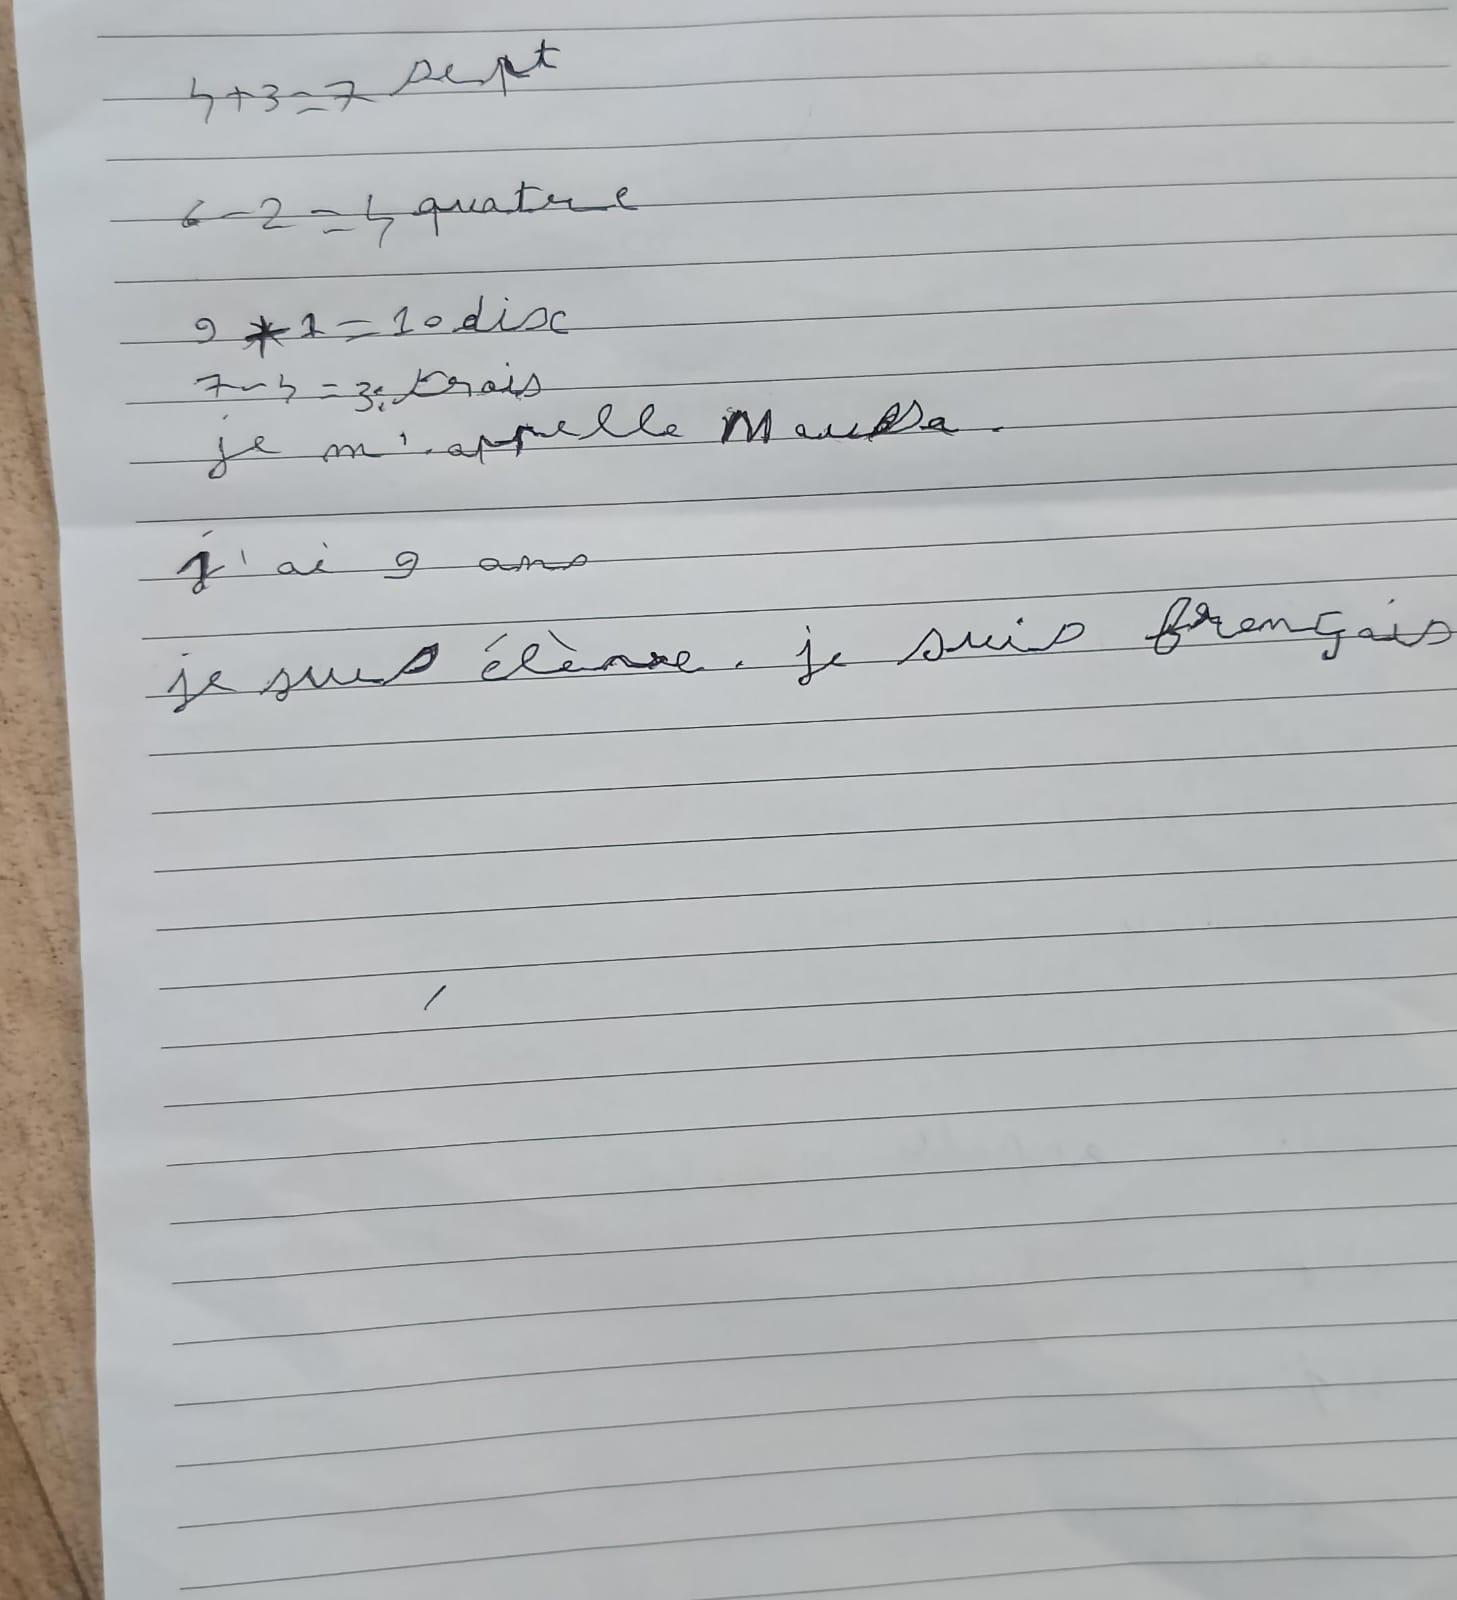 4+3=7 sept
6-2=4 quatre
9*1=10 disc
7-4=3: trois
je m'appelle Moussa.
j'ai 9 ans
je suis élève. je suis français